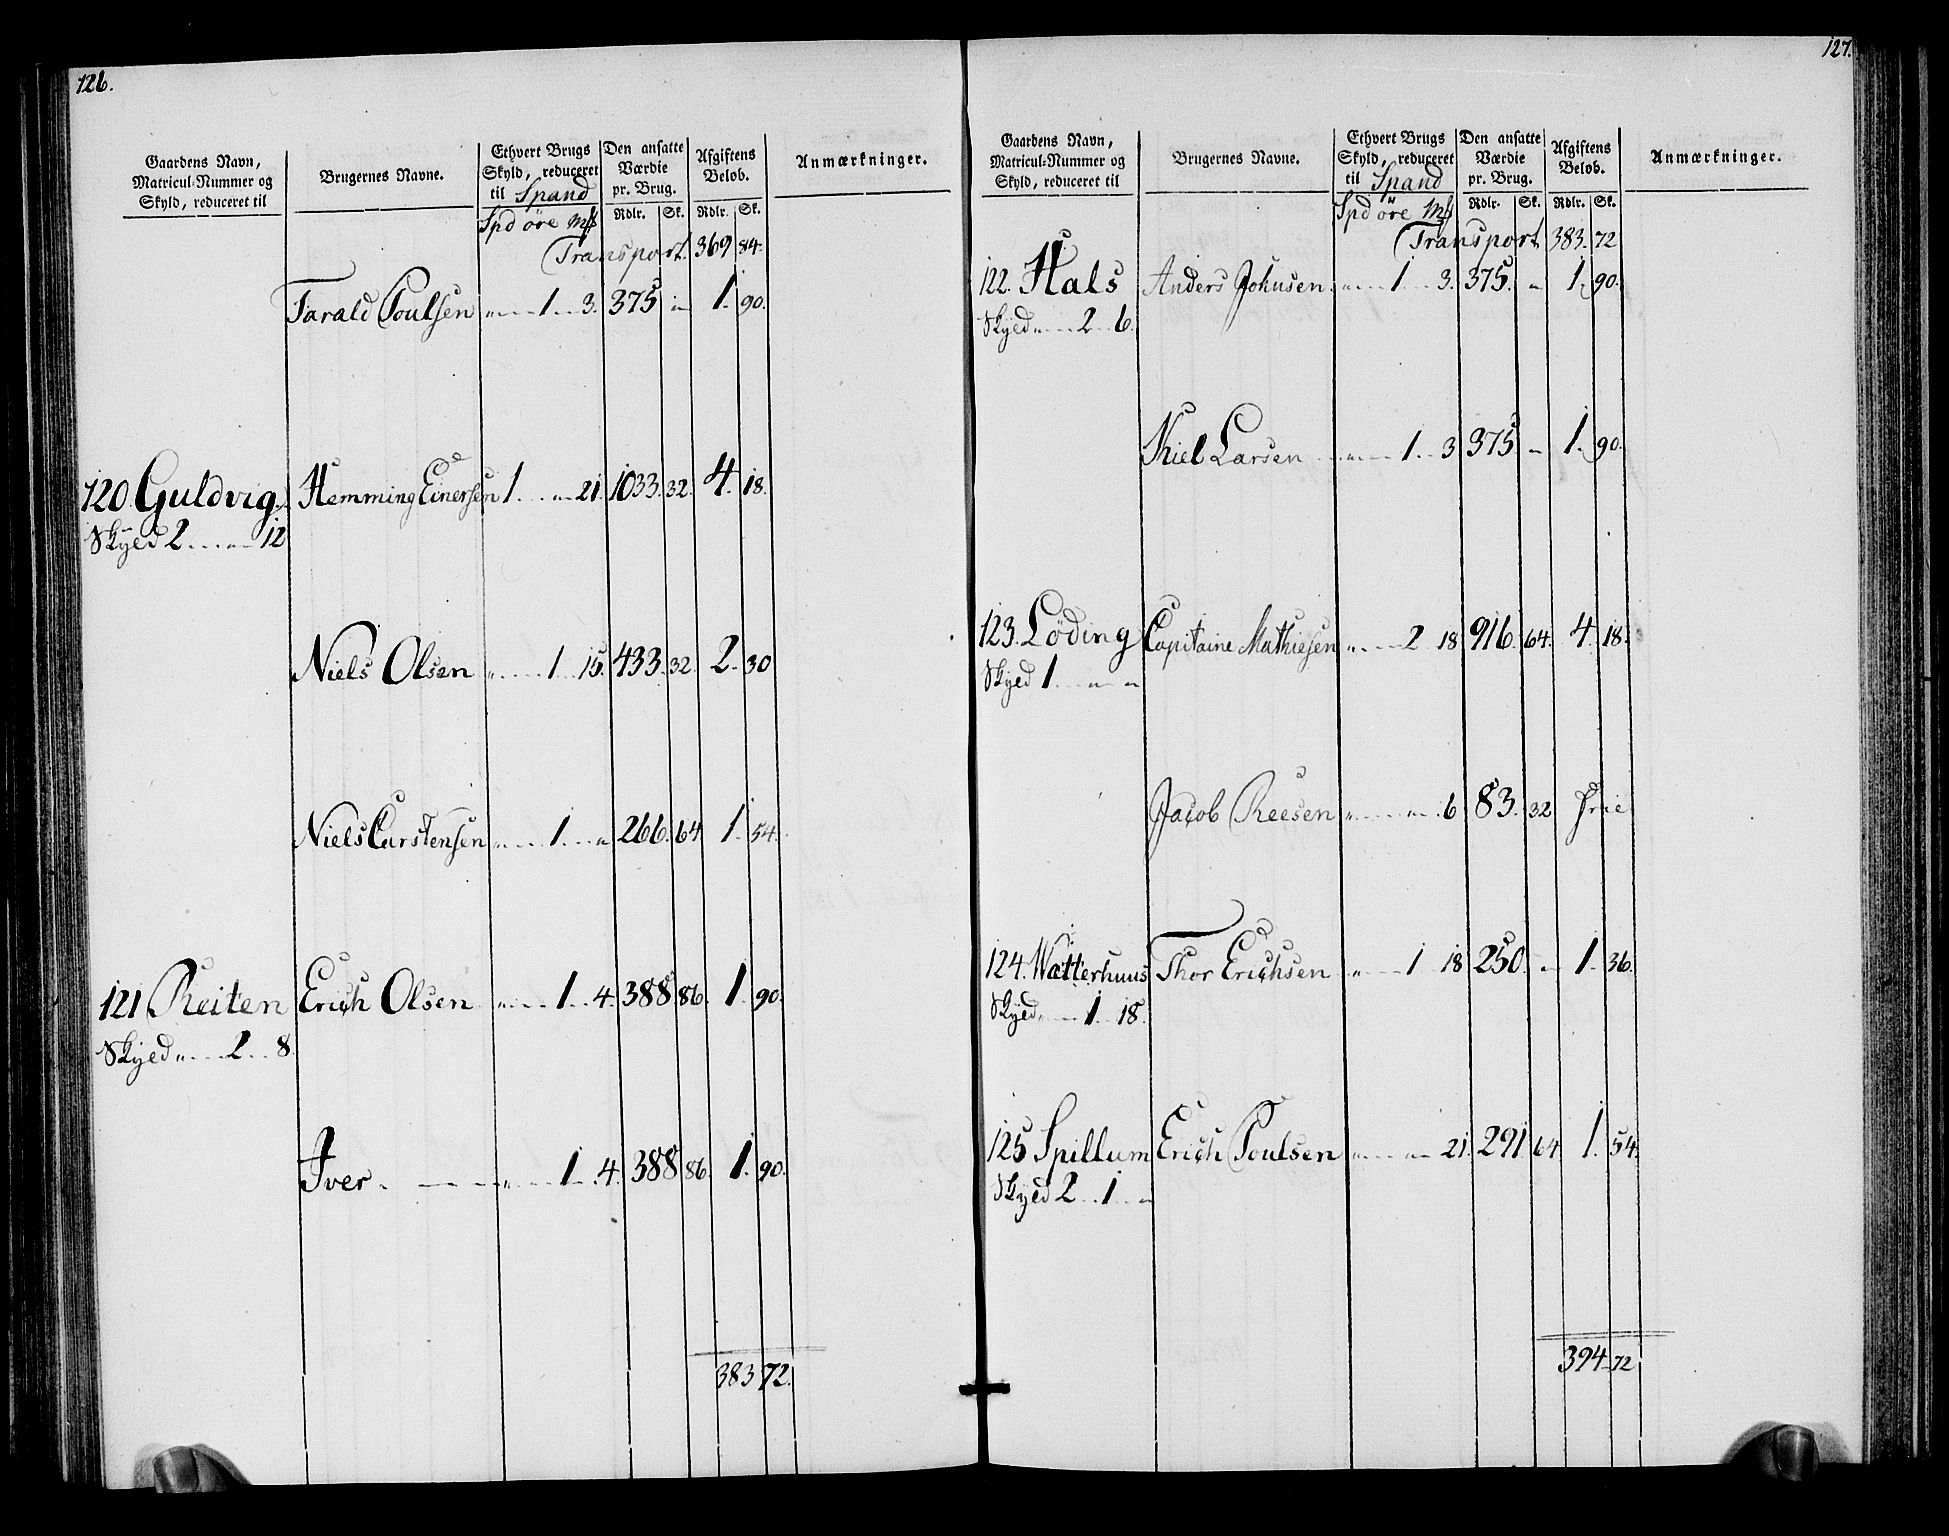 126.
Gaardens Navn, Matricul-Nummer og Skyld, reduceret til
Brugernes Navne.
Ethvert Brugs Skyld, reduceret til Spand
Den ansatte Værdie pr. Brug.
Afgiftens Beløb.
Anmærkninger.
Spd öre Mk Rdlr. Sk. Rdlr. Sk.
Transport. 369 84.
Tarald Poulsen „ 1 3. 375 „ 1. 90.
120 Guldvig. Hemming Einersen 1. „ 21. 1033. 32. 4. 18.
Skyld 2 „ 12
Niels Olsen „ 1 15. 433. 32. 2. 30
Niels Carstensen „ 1. „ 266. 64 1. 54.
121 Reiten Erich Olsen „ 1. 4. 388 86. 1. 90.
Skyld „ 2 8.
Iver. „ 1 4. 388 86. 1. 90.
383 72.
127.
Gaardens Navn, Matricul-Nummer og Skyld, reduceret til
Brugernes Navne.
Ethvert Brugs Skyld, reduceret til Spand
Den ansatte Værdie pr. Brug.
Afgiftens Beløb.
Anmærkninger.
Spd öre Mk Rdlr. Sk. Rdlr. Sk.
Transport 383. 72
122. Hals Anders Johnsen. „ 1 3. 375. „ 1. 90.
Skyld „ 2 6.
Kiel Larsen „ 1 3 375 „ 1. 90.
123. Löding Capitaine Mathiesen „ 2 18 916. 64. 4. 18.
Skyld 1 „ „
Jacob Reesen „ „ 6 83. 32 frie
124. Watterhuus Thor Erichsen „ 1 18 250. „ 1. 36.
Skyld „ 1 18.
125 Spillum Erich Poulsen „ „ 21. 291. 64 1. 54.
Skyld 2 1 „
394 72